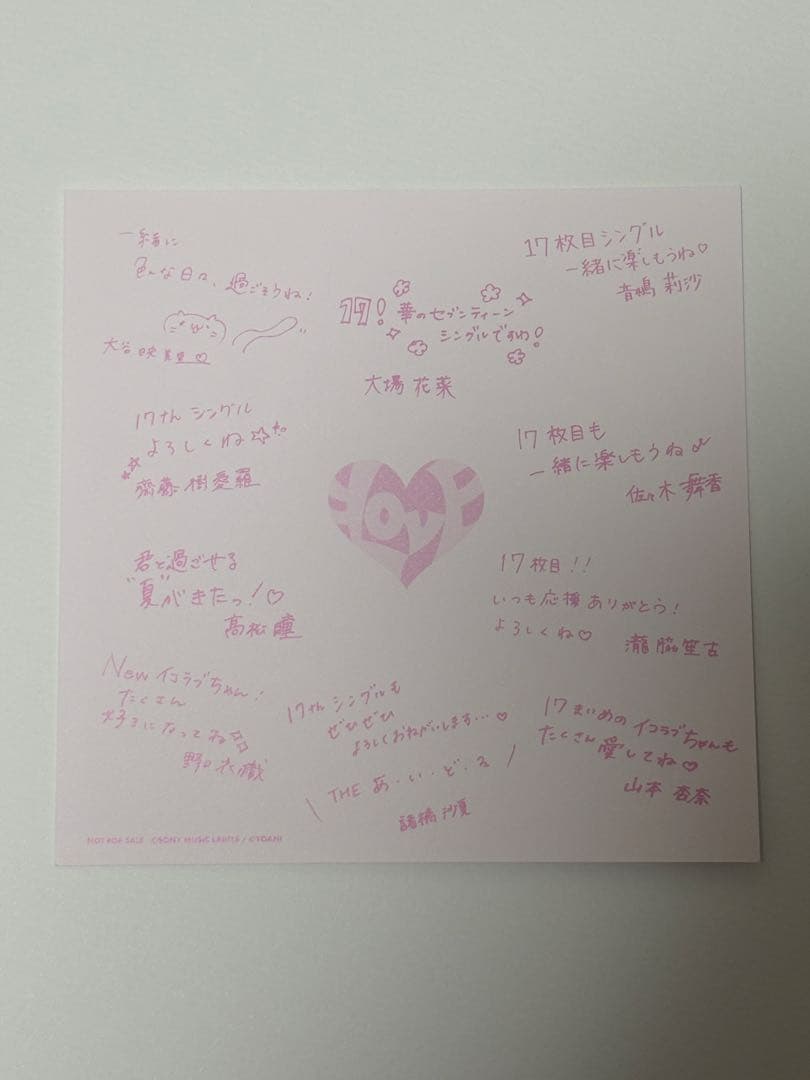 一緒に
色んな日々、過ごそうね!
大谷映美里♡
17!華のセブンティーン
シングルですわ!
大場花菜
17枚目シングル
一緒に楽しもうね♡
音嶋莉沙
17th シングル
よろしくね☆
齋藤樹愛羅
17枚目も
一緒に楽しもうね♪
佐々木舞香
LOVE
君と過ごせる
"夏"がきたっ!♡
髙松瞳
17枚目!!
いつも応援ありがとう!
よろしくね♡
瀧脇笙古
New イコラブちゃん!
たくさん
好きになってね
野口衣織
17th シングルも
ぜひぜひ
よろしくおねがいします…♡
\ THE あ・い・ど・る /
諸橋沙夏
17まいめの イコラブちゃんも
たくさん愛してね♡
山本杏奈
NOT FOR SALE ©SONY MUSIC LABELS / ©YOANI